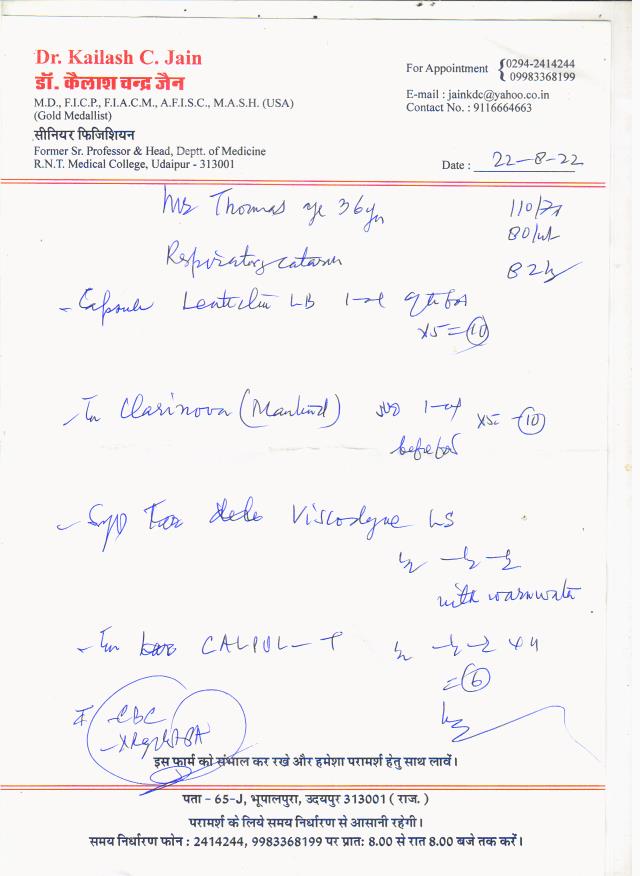 Dr. Kailash C. Jain
डॉ. कैलाश चन्द्र जैन
M.D., F.I.C.P., F.I.A.C.M., A.F.I.S.C., M.A.S.H. (USA)
(Gold Medallist)
सीनियर फिजिशियन
Former Sr. Professor & Head, Deptt. of Medicine
R.N.T. Medical College, Udaipur - 313001
For Appointment { 0294-2414244
09983368199
E-mail : jainkdc@yahoo.co.in
Contact No. : 9116664663
Date : 22-8-22
Thomas 36
110/71
80
Respiratory catarrh
82
- Capsule LB
x5 = 10
Clarinova (Mankind) x5 = 10
- Syp Viscodyne LS
with warm water
CALPOL - T
= 6
- CBC
इस फार्म को संभाल कर रखे और हमेशा परामर्श हेतु साथ लावें।
पता - 65-J, भूपालपुरा, उदयपुर 313001 ( राज. )
परामर्श के लिये समय निर्धारण से आसानी रहेगी।
समय निर्धारण फोन : 2414244, 9983368199 पर प्रात: 8.00 से रात 8.00 बजे तक करें।